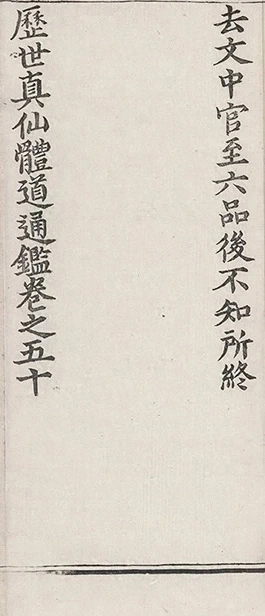 去文中官至六品後不知所終
歷世真仙體道通鑑卷之五十